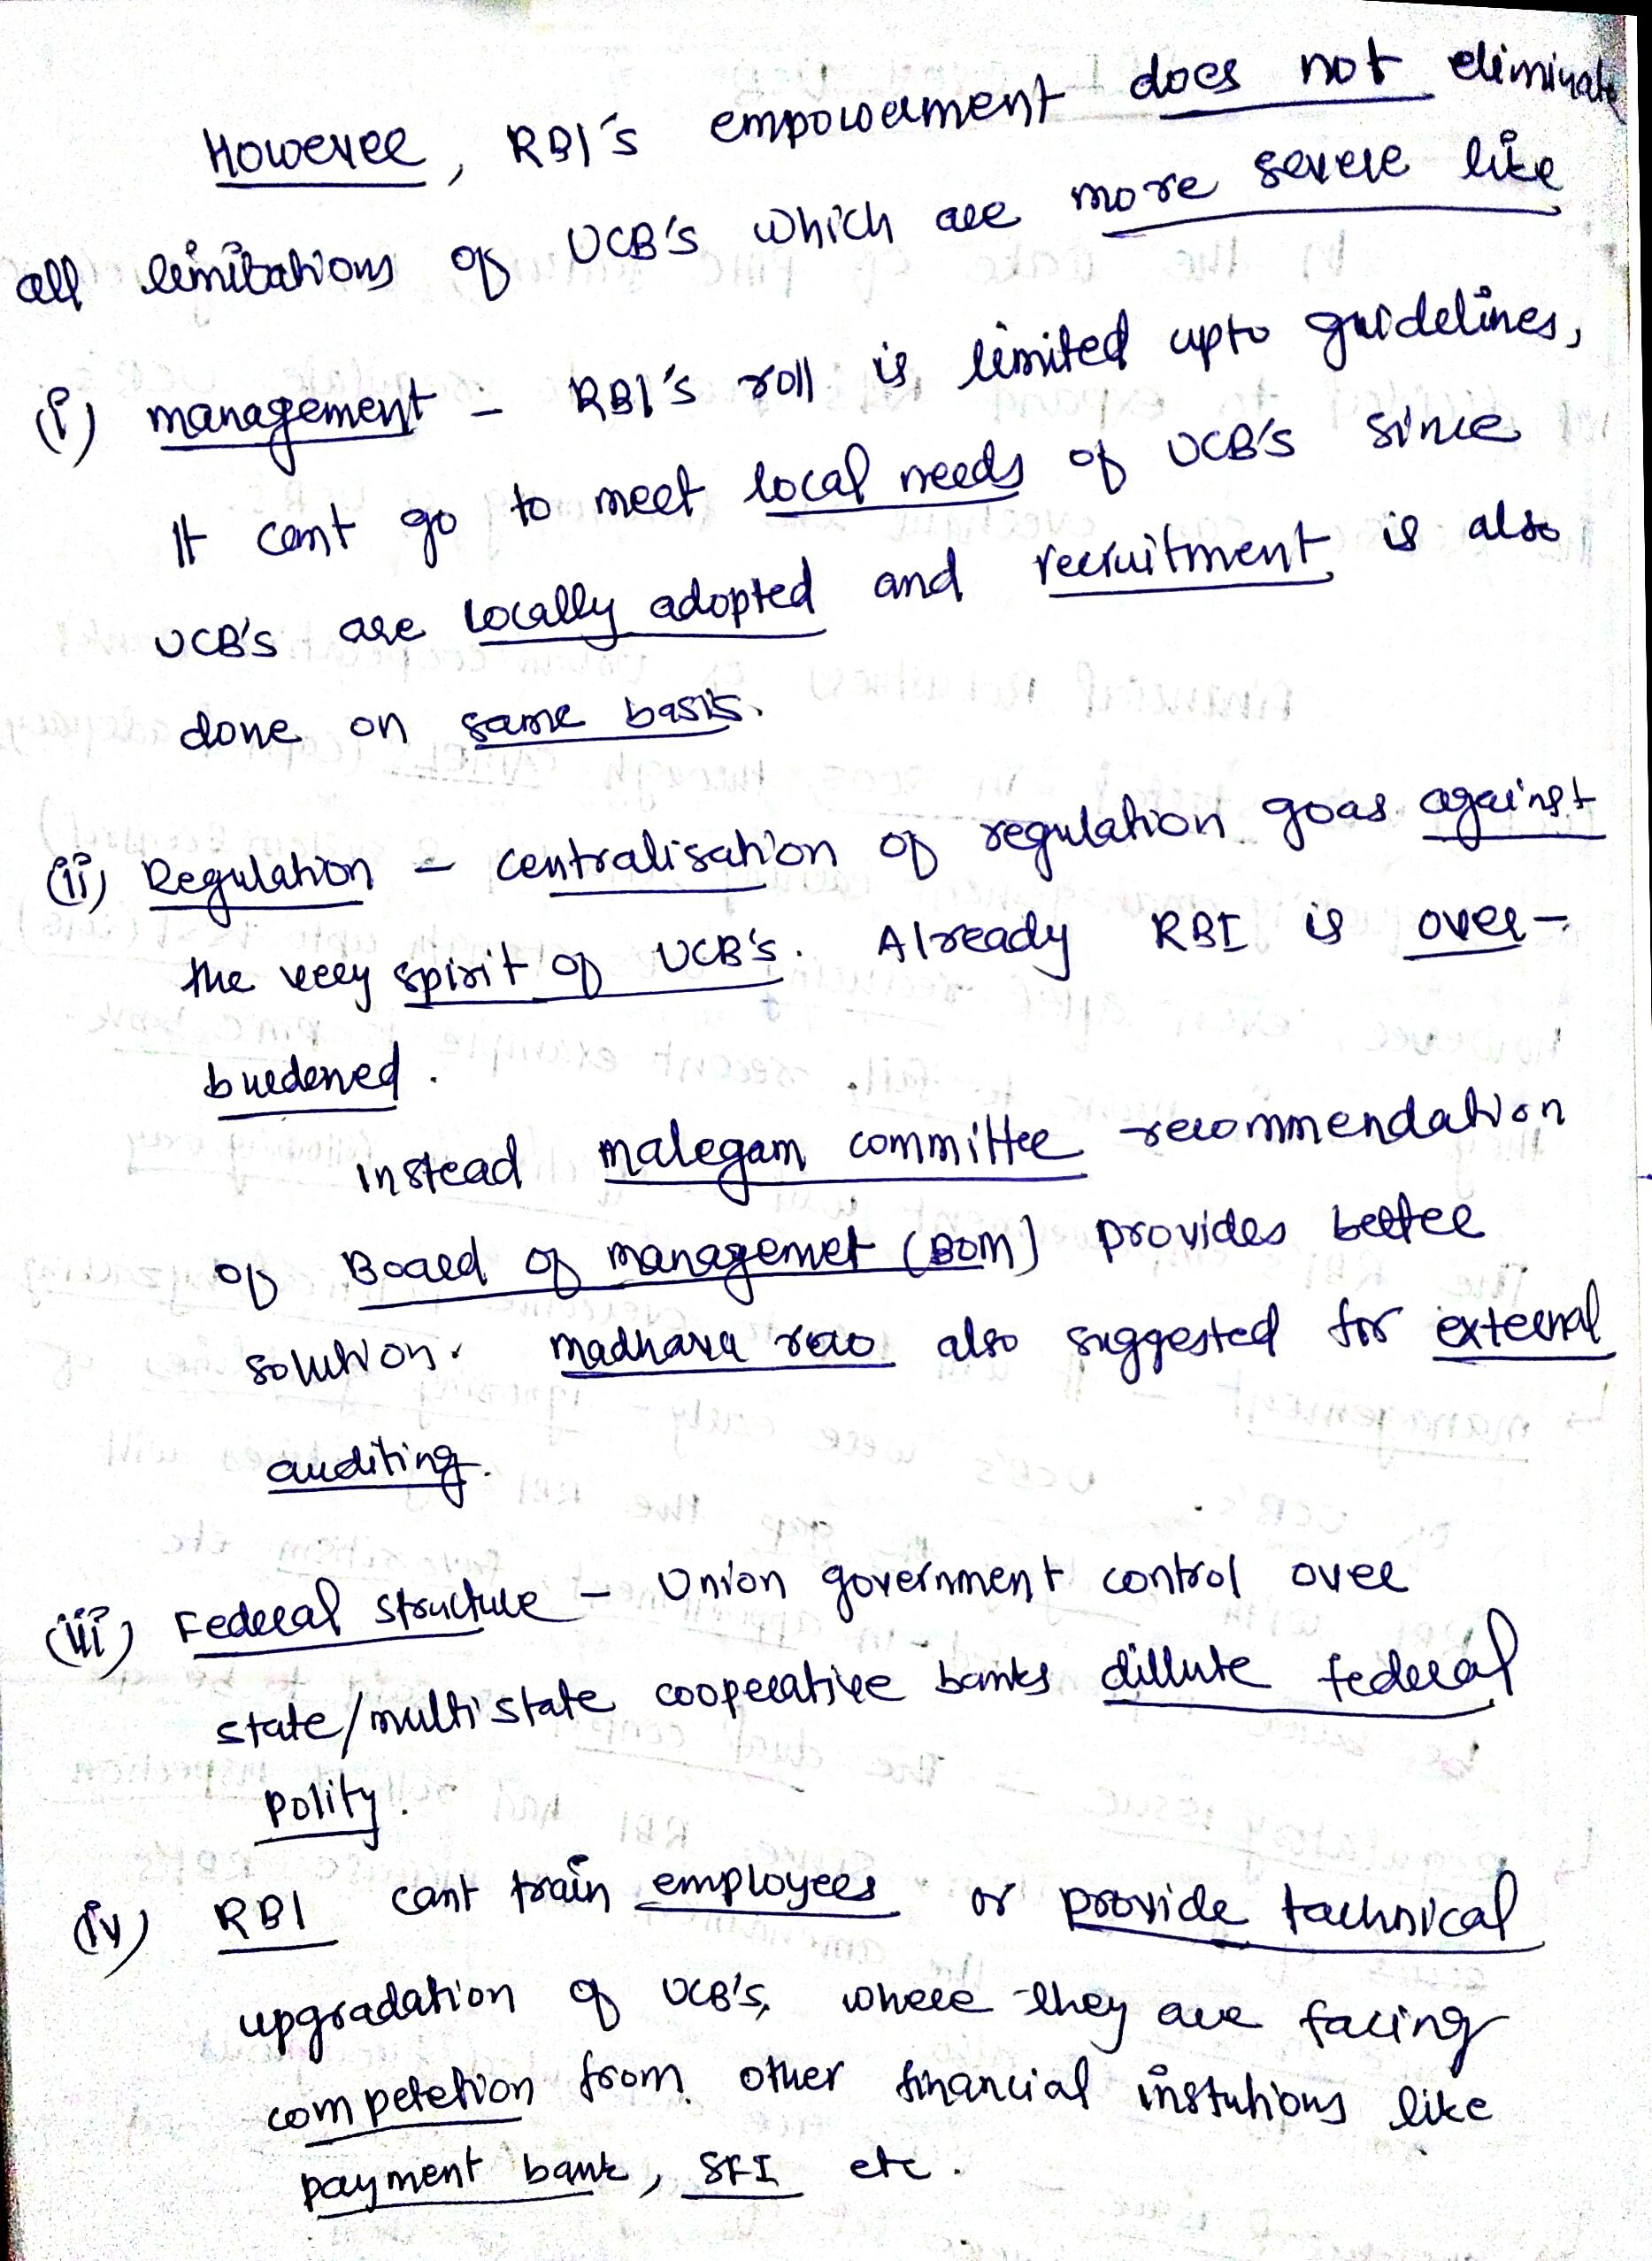 However, RBI's empowerment does not eliminate
all limitations of UCB's which are more severe like
(i) management - RBI's roll is limited upto guidelines,
It cant go to meet local needs of UCB's since
UCB's are locally adopted and recruitment is also
done on same basis.
(ii) Regulation - centralisation of regulation goas against
the very spirit of UCB's. Already RBI is over-
burdened.
Instead malegam committee recommendation
of Board of managemet (BOM) provides better
solution. madhava rao also suggested for external
auditing.
(iii) Federal structure - Union government control over
state/multi state cooperative banks dillute federal
polity.
(iv) RBI cant train employees or provide technical
upgradation of UCB's, where they are facing
competetion from other financial instutions like
payment bank, SFI etc.